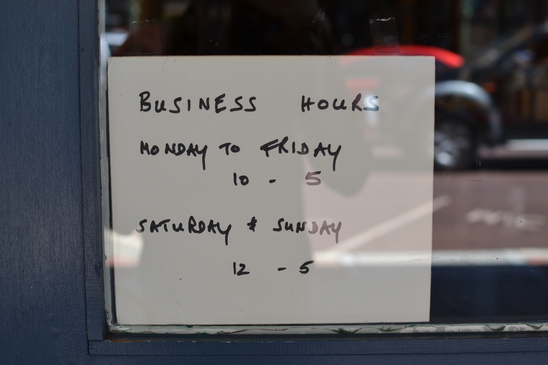 BUSINESS HOURS
MONDAY TO FRIDAY
10 - 5
SATURDAY & SUNDAY
12 - 5